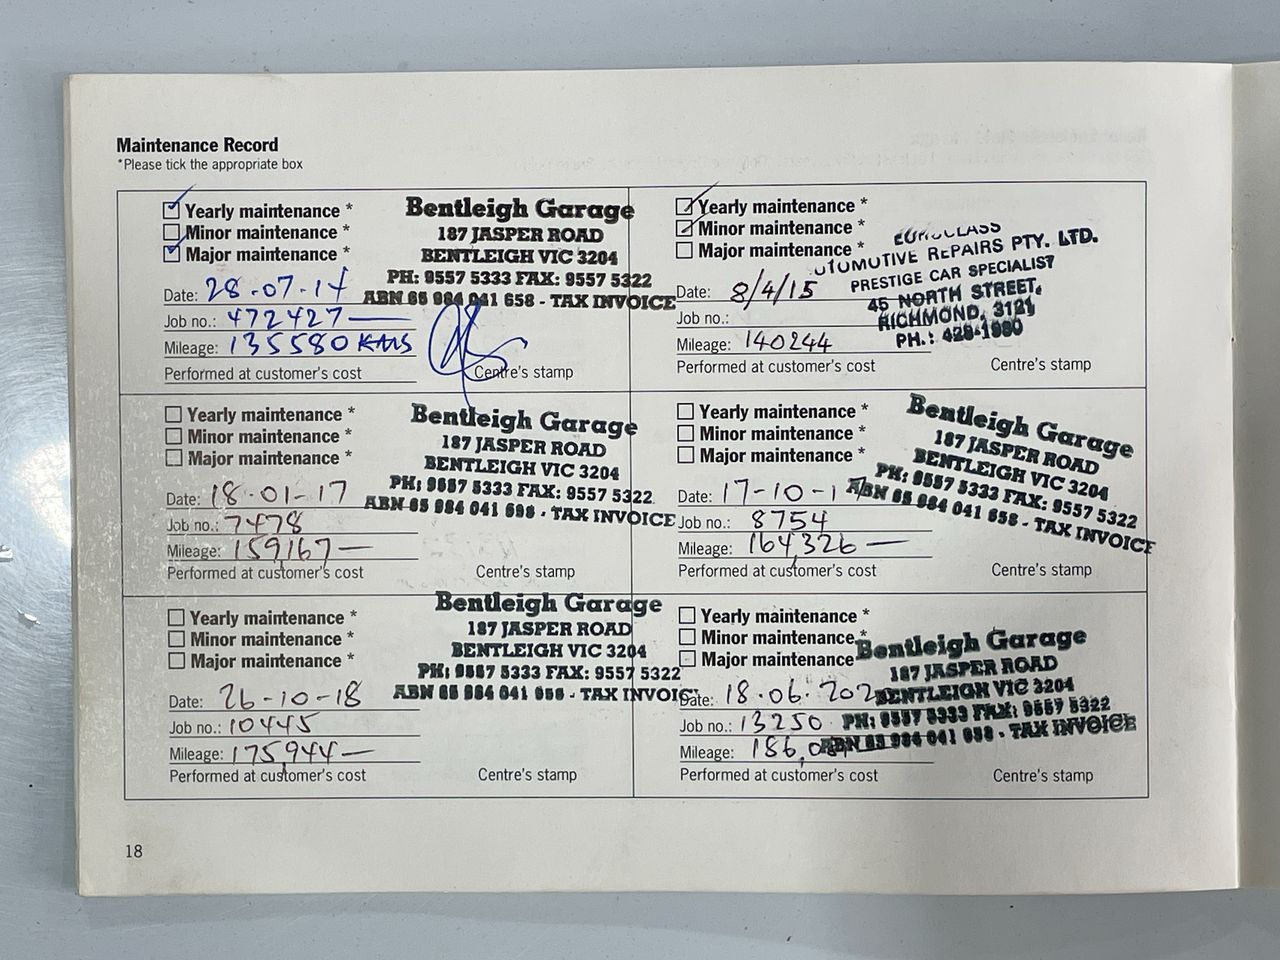 Maintenance Record
*Please tick the appropriate box
Yearly maintenance *
Minor maintenance *
Major maintenance *
Date: 28-07-14
Job no.: 472427
Mileage: 135580 KMS
Performed at customer's cost
Bentleigh Garage
187 JASPER ROAD
BENTLEIGH VIC 3204
PH: 9557 5333 FAX: 9557 5322
ABN 65 984 041 658 - TAX INVOICE
Centre's stamp
Yearly maintenance *
Minor maintenance *
Major maintenance *
Date: 8/4/15
Job no.:
Mileage: 140244
Performed at customer's cost
EUROCLASS
UTOMOTIVE REPAIRS PTY. LTD.
PRESTIGE CAR SPECIALIST
45 NORTH STREET,
RICHMOND, 3121
PH.: 428-1980
Centre's stamp
Yearly maintenance *
Minor maintenance *
Major maintenance *
Date: 18-01-17
Job no.: 7478
Mileage: 159167
Performed at customer's cost
Bentleigh Garage
187 JASPER ROAD
BENTLEIGH VIC 3204
PH: 9557 5333 FAX: 9557 5322
ABN 65 984 041 658 - TAX INVOICE
Centre's stamp
Yearly maintenance *
Minor maintenance *
Major maintenance *
Date: 17-10-1
Job no.: 8754
Mileage: 164,326
Performed at customer's cost
Bentleigh Garage
187 JASPER ROAD
BENTLEIGH VIC 3204
PH: 9557 5333 FAX: 9557 5322
ABN 65 984 041 658 - TAX INVOICE
Centre's stamp
Yearly maintenance *
Minor maintenance *
Major maintenance *
Date: 26-10-18
Job no.: 10445
Mileage: 175,944
Performed at customer's cost
Bentleigh Garage
187 JASPER ROAD
BENTLEIGH VIC 3204
PH: 9557 5333 FAX: 9557 5322
ABN 65 984 041 658 - TAX INVOIC
Centre's stamp
Yearly maintenance *
Minor maintenance *
Major maintenance
Date: 18.06.202
Job no.: 13250
Mileage:
Performed at customer's cost
Bentleigh Garage
187 JASPER ROAD
BENTLEIGH VIC 3204
PH: 9557 5333 FAX: 9557 5322
ABN 65 984 041 658 - TAX INVOICE
Centre's stamp
18